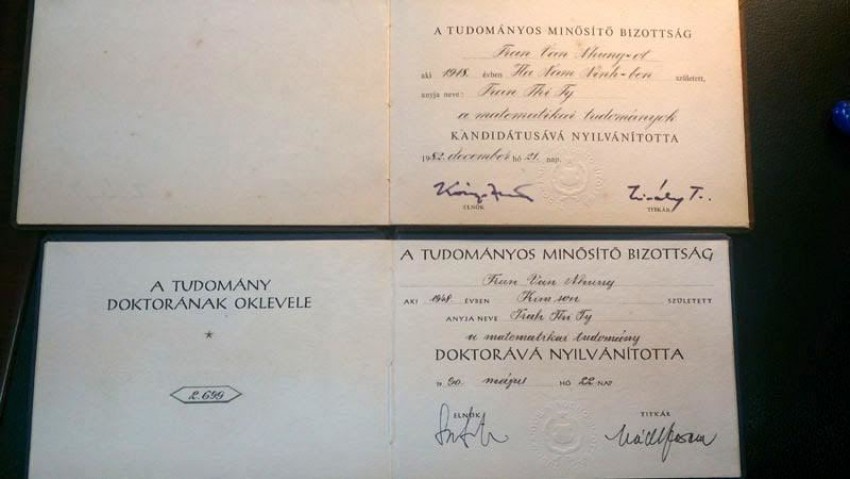 A TUDOMÁNYOS MINŐSÍTŐ BIZOTTSÁG
Tran Van Nhung-ot
aki 1948. évben Ha Nam Ninh-ben született,
anyja neve: Tran Thi Ty
a matematikai tudományok
KANDIDÁTUSÁVÁ NYILVÁNÍTOTTA
1982. december hó 21. nap.
ELNÖK TITKÁR
A TUDOMÁNY
DOKTORÁNAK OKLEVELE
*
2.699
A TUDOMÁNYOS MINŐSÍTŐ BIZOTTSÁG
Tran Van Nhung
AKI 1948 ÉVBEN Kim son SZÜLETETT
ANYJA NEVE Trah Thi Ty
a matematikai tudomány
DOKTORÁVÁ NYILVÁNÍTOTTA
19 90. május HÓ 22 NAP
ELNÖK TITKÁR